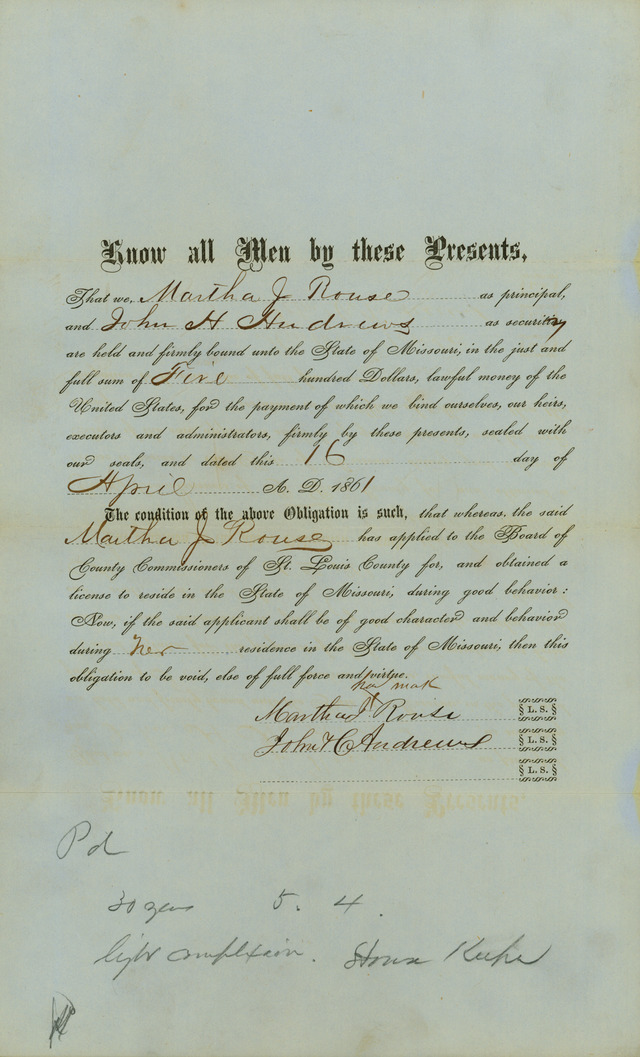 Know all Men by these Presents,
That we, Martha J Rouse as principal,
and John H Andrews as security
are held and firmly bound unto the State of Missouri, in the just and
full sum of Five hundred Dollars, lawful money of the
United States, for the payment of which we bind ourselves, our heirs,
executors and administrators, firmly by these presents, sealed with
our seals, and dated this 16 day of
April A. D. 1861
The condition of the above Obligation is such, that whereas, the said
Martha J Rouse has applied to the Board of
County Commissioners of St. Louis County for, and obtained a
license to reside in the State of Missouri, during good behavior:
Now, if the said applicant shall be of good character and behavior
during her residence in the State of Missouri, then this
obligation to be void, else of full force and virtue.
her mark
Martha J Rouse L. S.
John Andrews L. S.
L. S.
Pd
30 years 5. 4.
light complexion. House Keeper